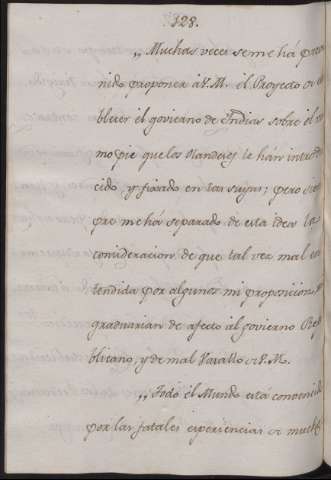 128.
„Muchas veces se me há preve
nido proponer à V.M. el Proyecto de
blecer él govierno de Indias sobre él
mo pie que los Olandeses le hán introdu
cido y fixado en las suyas; pero siem
pre me há separado de esta idea la
consideracion de que tal vez mal en
tendida por algunos mi proposicion
graduarian de afecto ál govierno Repu
blicano, y de mal Vasallo de V.M.
„Todo él Mundo está convencido
por las fatales experiencias de much